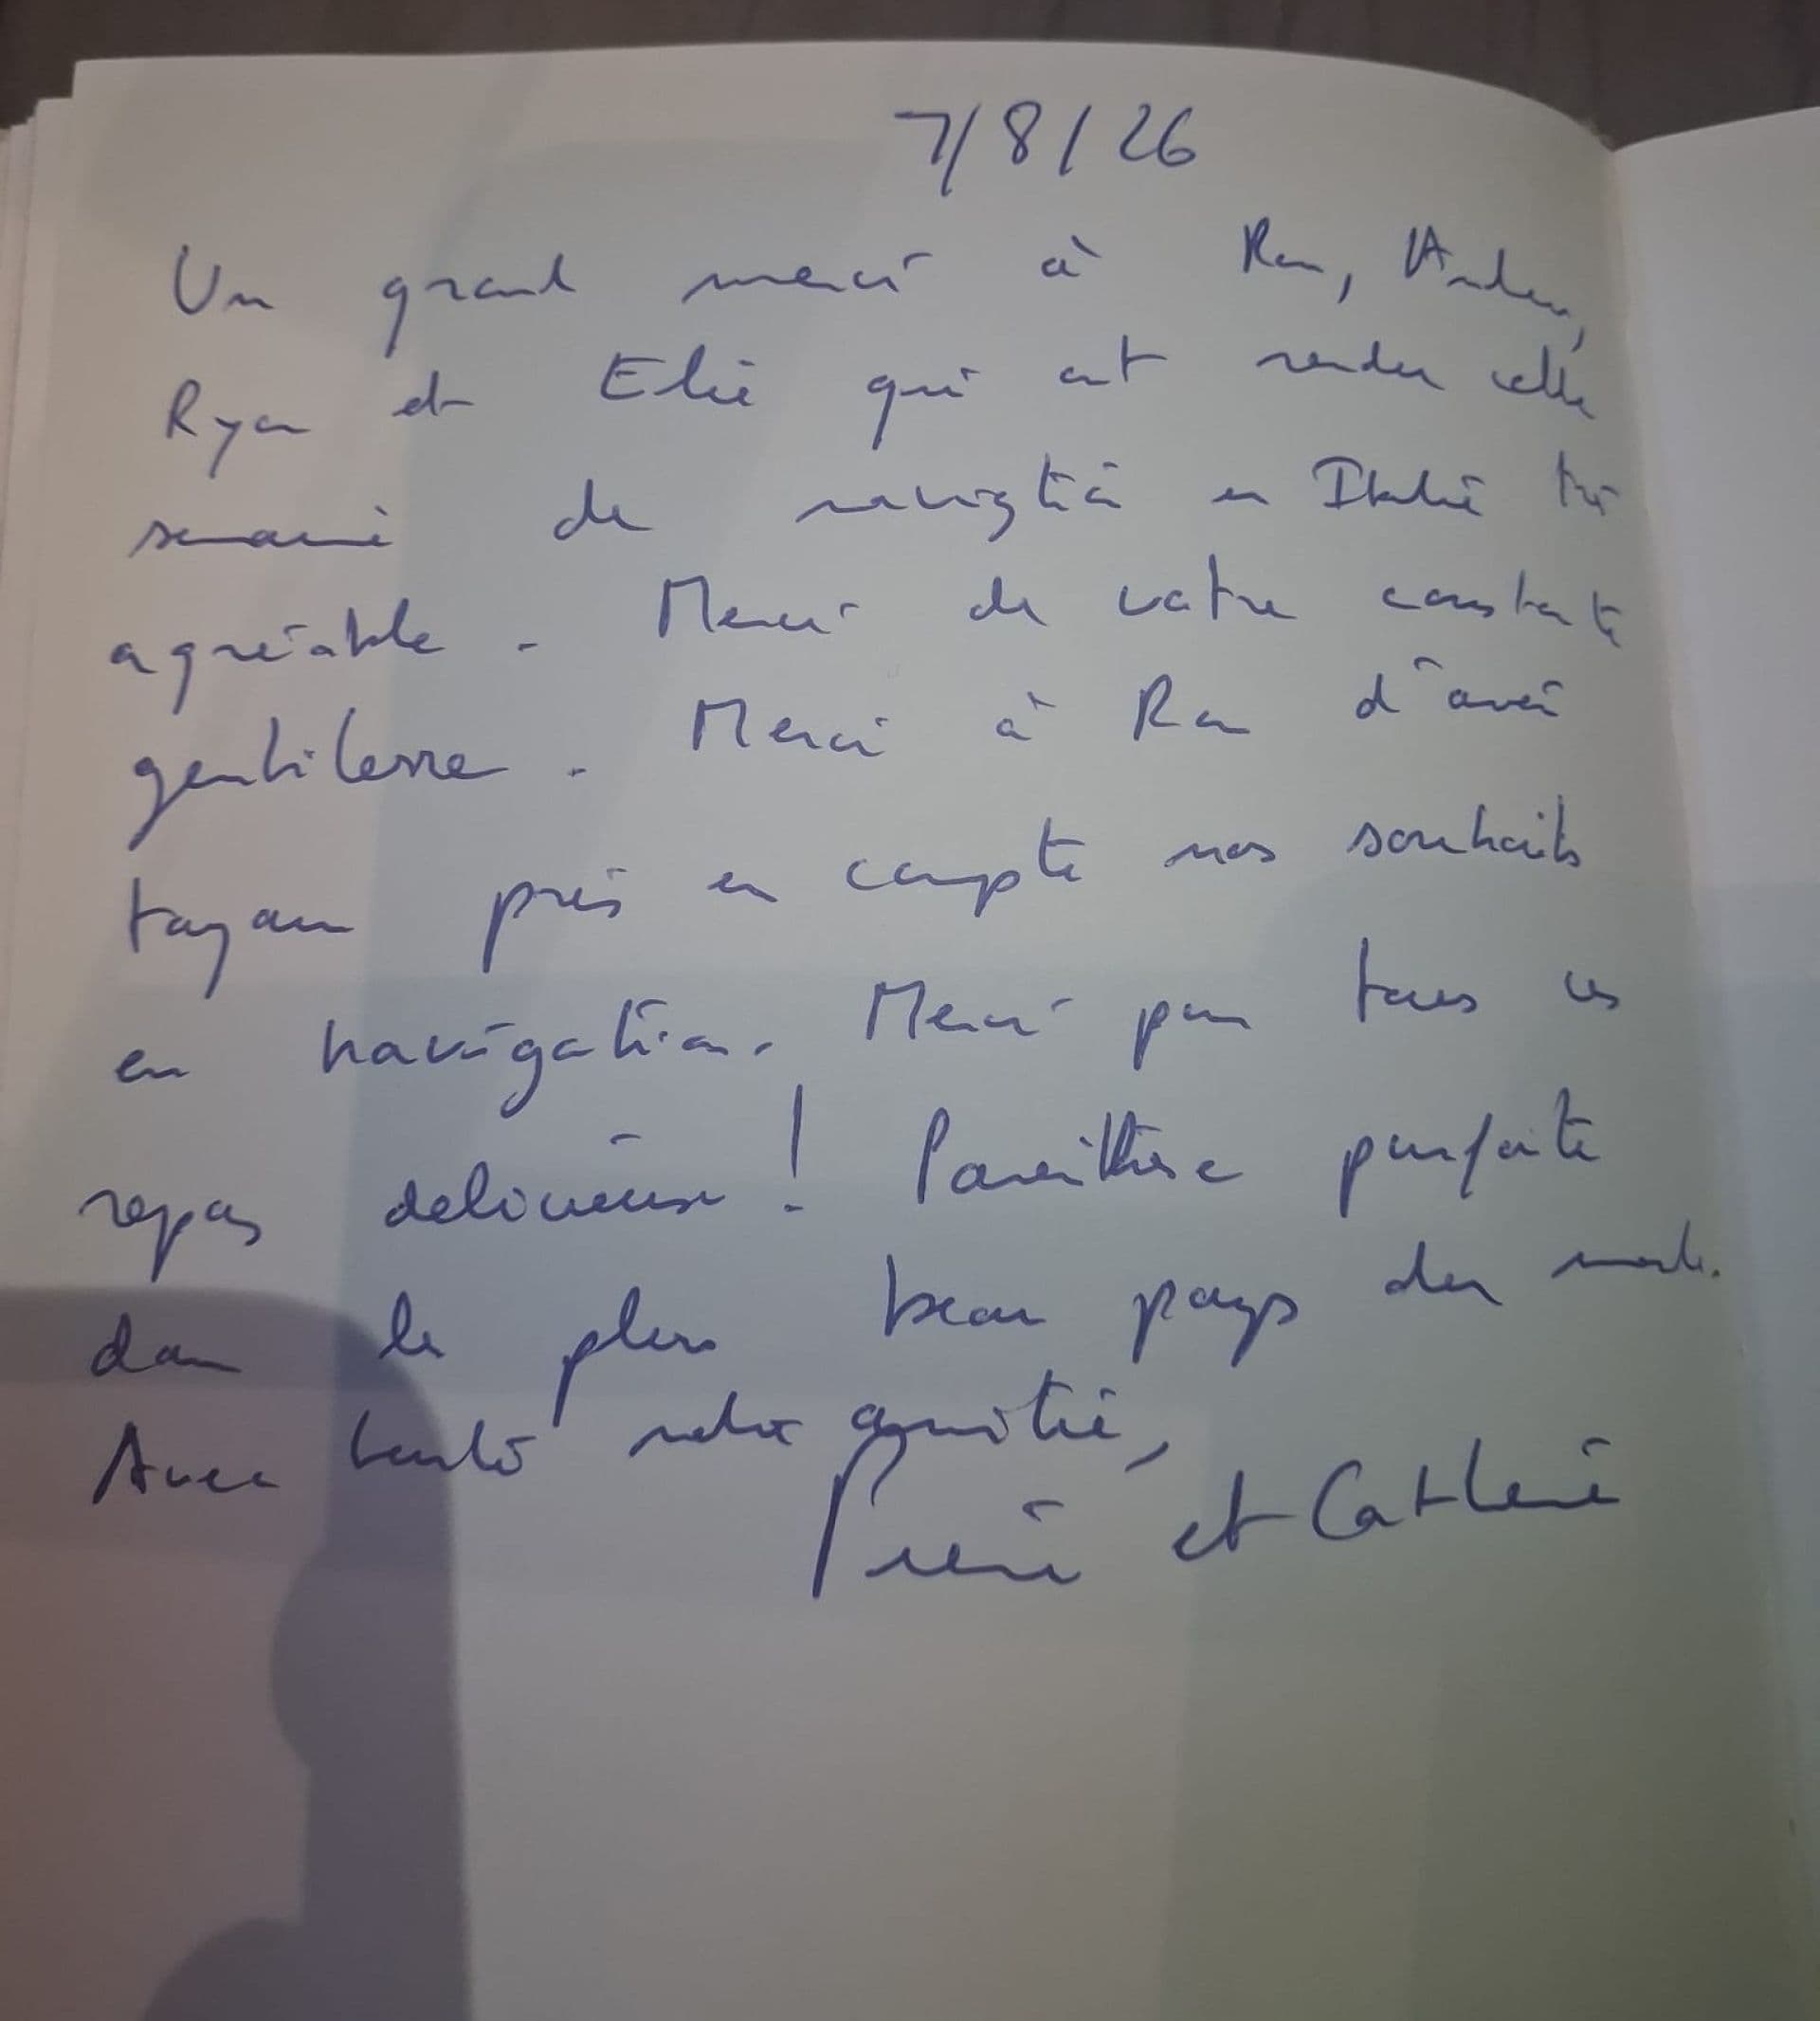 7/8/26
Un grand merci à Ron,
Ryan et Elie qui ont rendu cette
semaine de navigation en Italie très
agréable. Merci de votre constante
gentillesse. Merci à Ron d'avoir
toujours pris en compte nos souhaits
en navigation. Merci pour tous ces
repas délicieux! Parenthèse parfaite
dans le plus beau pays du monde.
Avec toute notre amitié,
Pierre et Cathleen